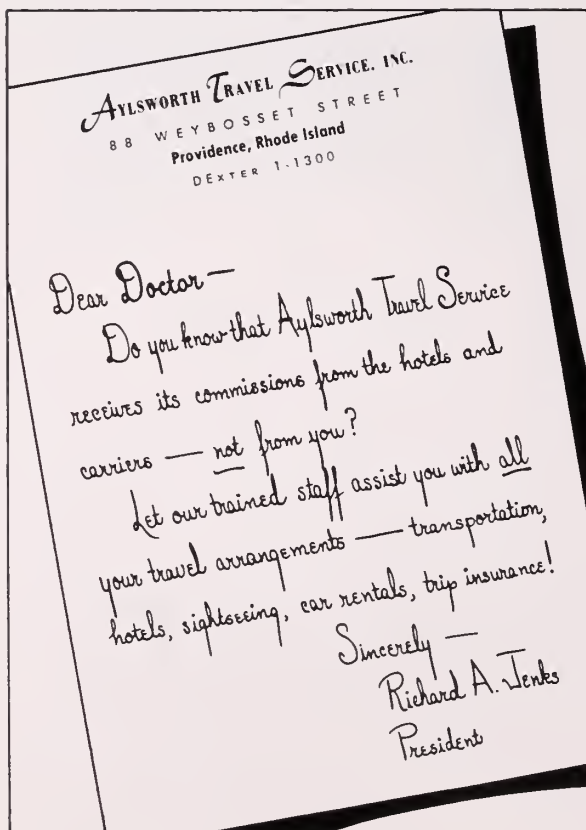 AYLSWORTH TRAVEL SERVICE, INC.
88 WEYBOSSET STREET
Providence, Rhode Island
DEXTER 1-1300
Dear Doctor —
Do you know that Aylsworth Travel Service
receives its commissions from the hotels and
carriers — not from you?
Let our trained staff assist you with all
your travel arrangements — transportation,
hotels, sightseeing, car rentals, trip insurance!
Sincerely —
Richard A. Jenks
President